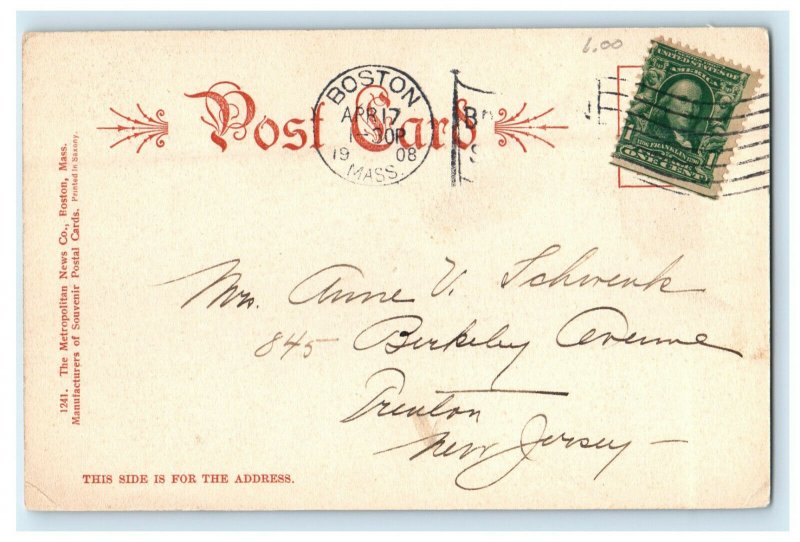 6.00
Post Card
BOSTON
APR 17
1908
MASS.
UNITED STATES OF AMERICA
FRANKLIN
1 ONE CENT 1
Mrs. Anne V. Schwenk
845 Berkeley Avenue
Trenton
New Jersey
1241. The Metropolitan News Co., Boston, Mass.
Manufacturers of Souvenir Postal Cards. Printed in Saxony.
THIS SIDE IS FOR THE ADDRESS.